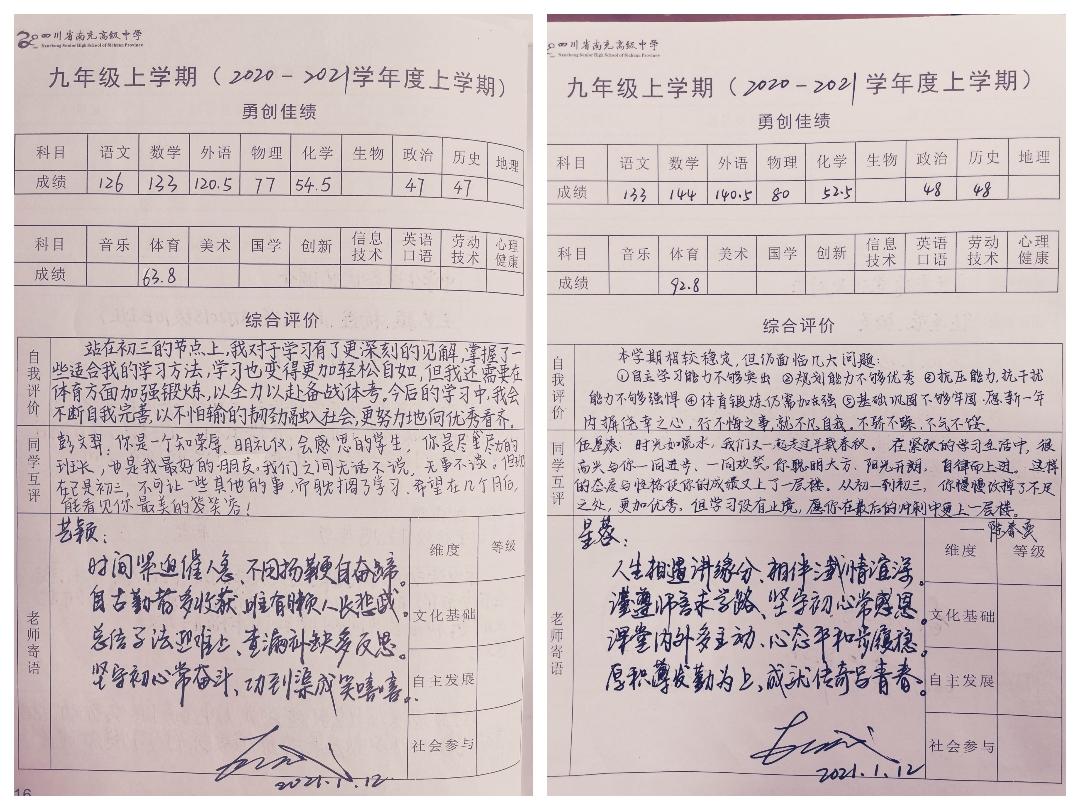 四川省南充高级中学
Nanchong Senior High School of Sichuan Province
九年级上学期（2020-2021学年度上学期）
勇创佳绩
科目 语文 数学 外语 物理 化学 生物 政治 历史 地理
成绩 126 133 120.5 77 54.5 47 47
科目 音乐 体育 美术 国学 创新 信息技术 英语口语 劳动技术 心理健康
成绩 63.8
综合评价
自我评价
站在初三的节点上,我对于学习有了更深刻的见解,掌握了一
些适合我的学习方法,学习也变得更加轻松自如,但我还需要在
体育方面加强锻炼,以全力以赴备战体考。今后的学习中,我会
不断自我完善,以不怕输的韧劲融入社会,更努力地向优秀看齐。
同学互评
你是一个知荣辱、明礼仪,会感恩的学生,你是尽望尽力的
班长,也是我最好的朋友,我们之间无话不说,无事不谈。但现
在已是初三,不可让一些其他的事,而耽搁了学习,希望在几个月后,
能看见你最美的笑容!
老师寄语
艺颖:
时间紧迫催人急、不用扬鞭自奋蹄。
自古勤者多收获、唯有懒人长悲戚。
总结方法迎难上、查漏补缺多反思。
坚守初心常奋斗、功到渠成笑嘻嘻。
2021.1.12
维度 等级
文化基础
自主发展
社会参与
16
四川省南充高级中学
Nanchong Senior High School of Sichuan Province
九年级上学期（2020-2021学年度上学期）
勇创佳绩
科目 语文 数学 外语 物理 化学 生物 政治 历史 地理
成绩 133 144 140.5 80 52.5 48 48
科目 音乐 体育 美术 国学 创新 信息技术 英语口语 劳动技术 心理健康
成绩 92.8
综合评价
自我评价
本学期相较稳定,但仍面临几大问题:
①自主学习能力不够突出 ②规划能力不够优秀 ③抗压能力,抗干扰
能力不够强悍 ④体育锻炼仍需加强 ⑤基础巩固不够牢固,愿新一年
内摒侥幸之心,行不悔之事,就不凡自我。不骄不躁,不气不馁。
同学互评
时光如流水,我们又一起走过半载春秋。在紧张的学习生活中,很
高兴与你一同进步、一同欢笑。你聪明大方、阳光开朗、自律而上进。这样
的态度与性格使你的成绩又上了一层楼。从初一到初三,你慢慢改掉了不足
之处,更加优秀。但学习没有止境,愿你在最后的冲刺中更上一层楼。
老师寄语
人生相遇讲缘分、相伴三载情谊深。
谨遵师言求学路、坚守初心常感恩。
课堂内外多主动、心态平和步履稳。
厚积薄发勤为上、成就传奇吕青春。
2021.1.12
维度 等级
文化基础
自主发展
社会参与